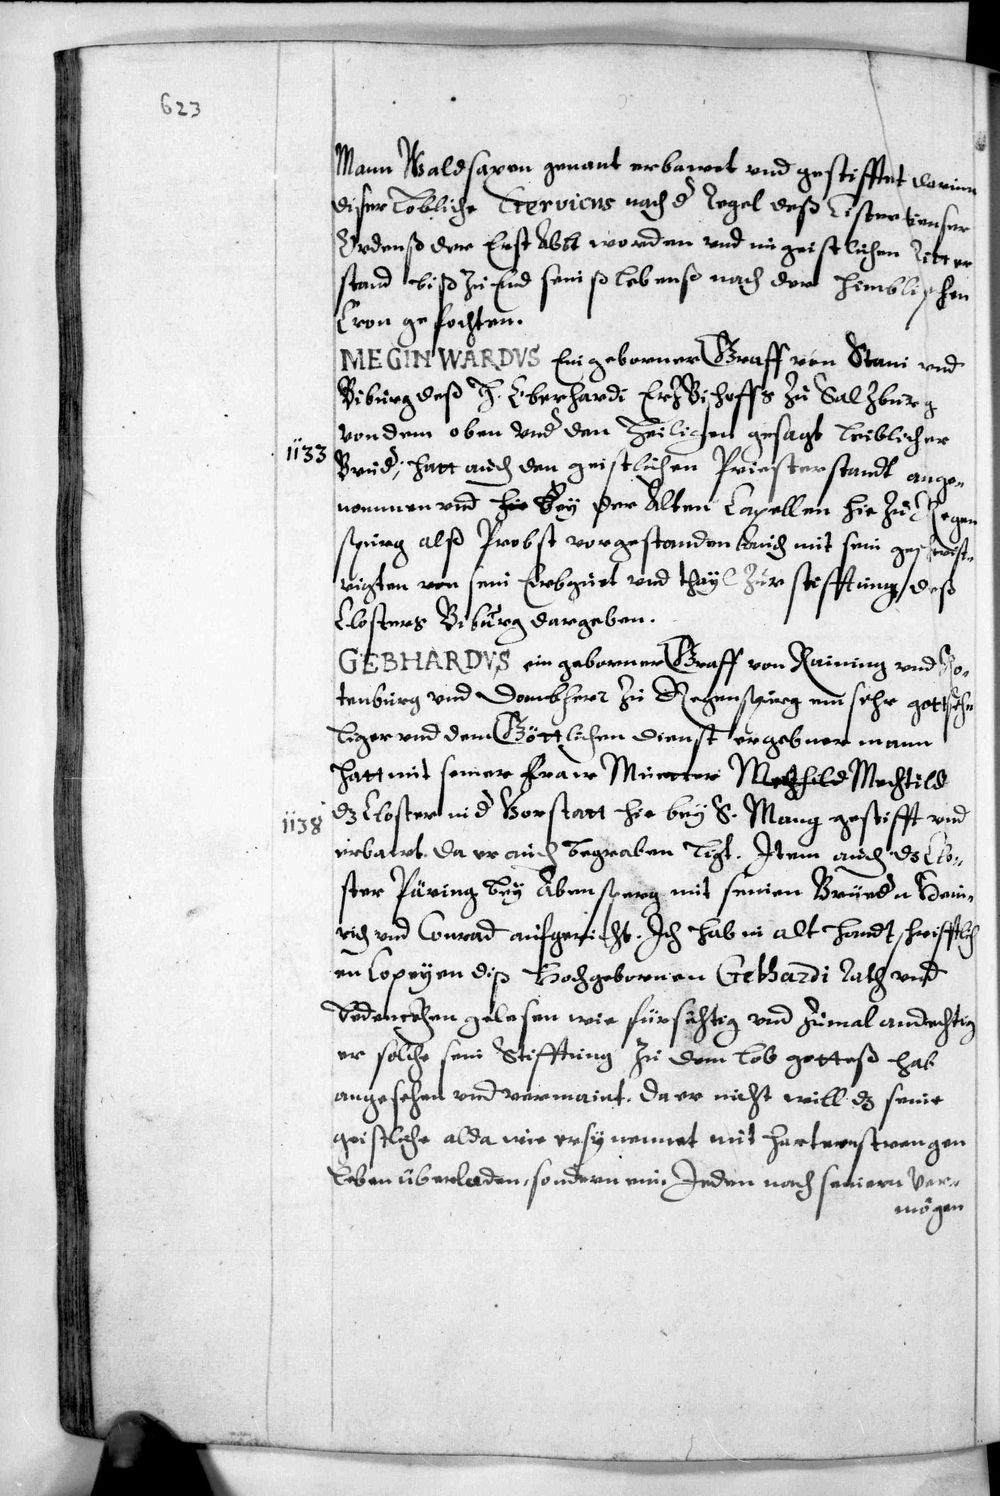 623
Mann Waldsaxen genant erbawet vnd gestifftet darinn
diser Lobliche Gerovicus nach d Regel deß Cistertienser
Ordenß der Erst Abbt worden vnd in geistlichen Ritter
stand biß zu End seinß lebenß nach der himblischen
Cron gefochten.
MEGINWARDVS Ein geborner Graff von Stain vnd
Biburg deß H. Eberhardi Erzbischoffs zu Salzburg
von dem oben vnd den Heiligen gesagt leiblicher
1133
Brud, hatt auch den geistlichen Priesterstandt ange-
nommen vnd hie bey der Alten Capellen hie zu Regen
spurg alß Probst vorgestanden auch mit sein geschwist-
rigten von sein Erbguet vnd thayl zur stifftung deß
Closters Biburg dargeben.
GEBHARDVS ein geborner Graff von Raining vnd Ro-
tenburg vnd Dombherr zu Regenspurg ein sehr gottseh-
liger vnd dem Göttlichen dienst ergebner mann
hatt mit seiner fraw Muetter Mechtild
1138
dz Closter in d Vorstatt hie bey S. Mang gestifft vnd
erbawt. da er auch begraben ligt. Item auch dz Clo-
ster Päring bey Abensperg mit seinen Brüedn Hein-
rich vnd Conrad aufgericht. Ich hab in alt handtschrifftlich
en Copeyen diß Hochgebornen Gebhardi Rath vnd
Bedencken gelesen wie fürsichtig vnd zumal andechtig
er solche sein Stifftung zu dem lob gotteß hab
angesehen vnd vermaint. da er nicht will dz seine
geistliche alda wie er sy nennet mit hartem strengen
Leben überladen, sondern ein Jeden nach seinem Ver-
mögen